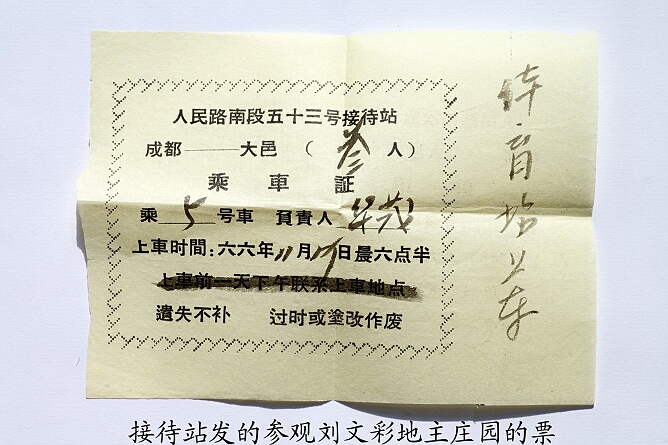 人民路南段五十三号接待站
成都——大邑（叁人）
乘車証
乘 5 号車 負責人
上車时間：六六年11月17日晨六点半
上車前一天下午联系上車地点
遺失不补 过时或塗改作废
体育場上车
接待站发的参观刘文彩地主庄园的票